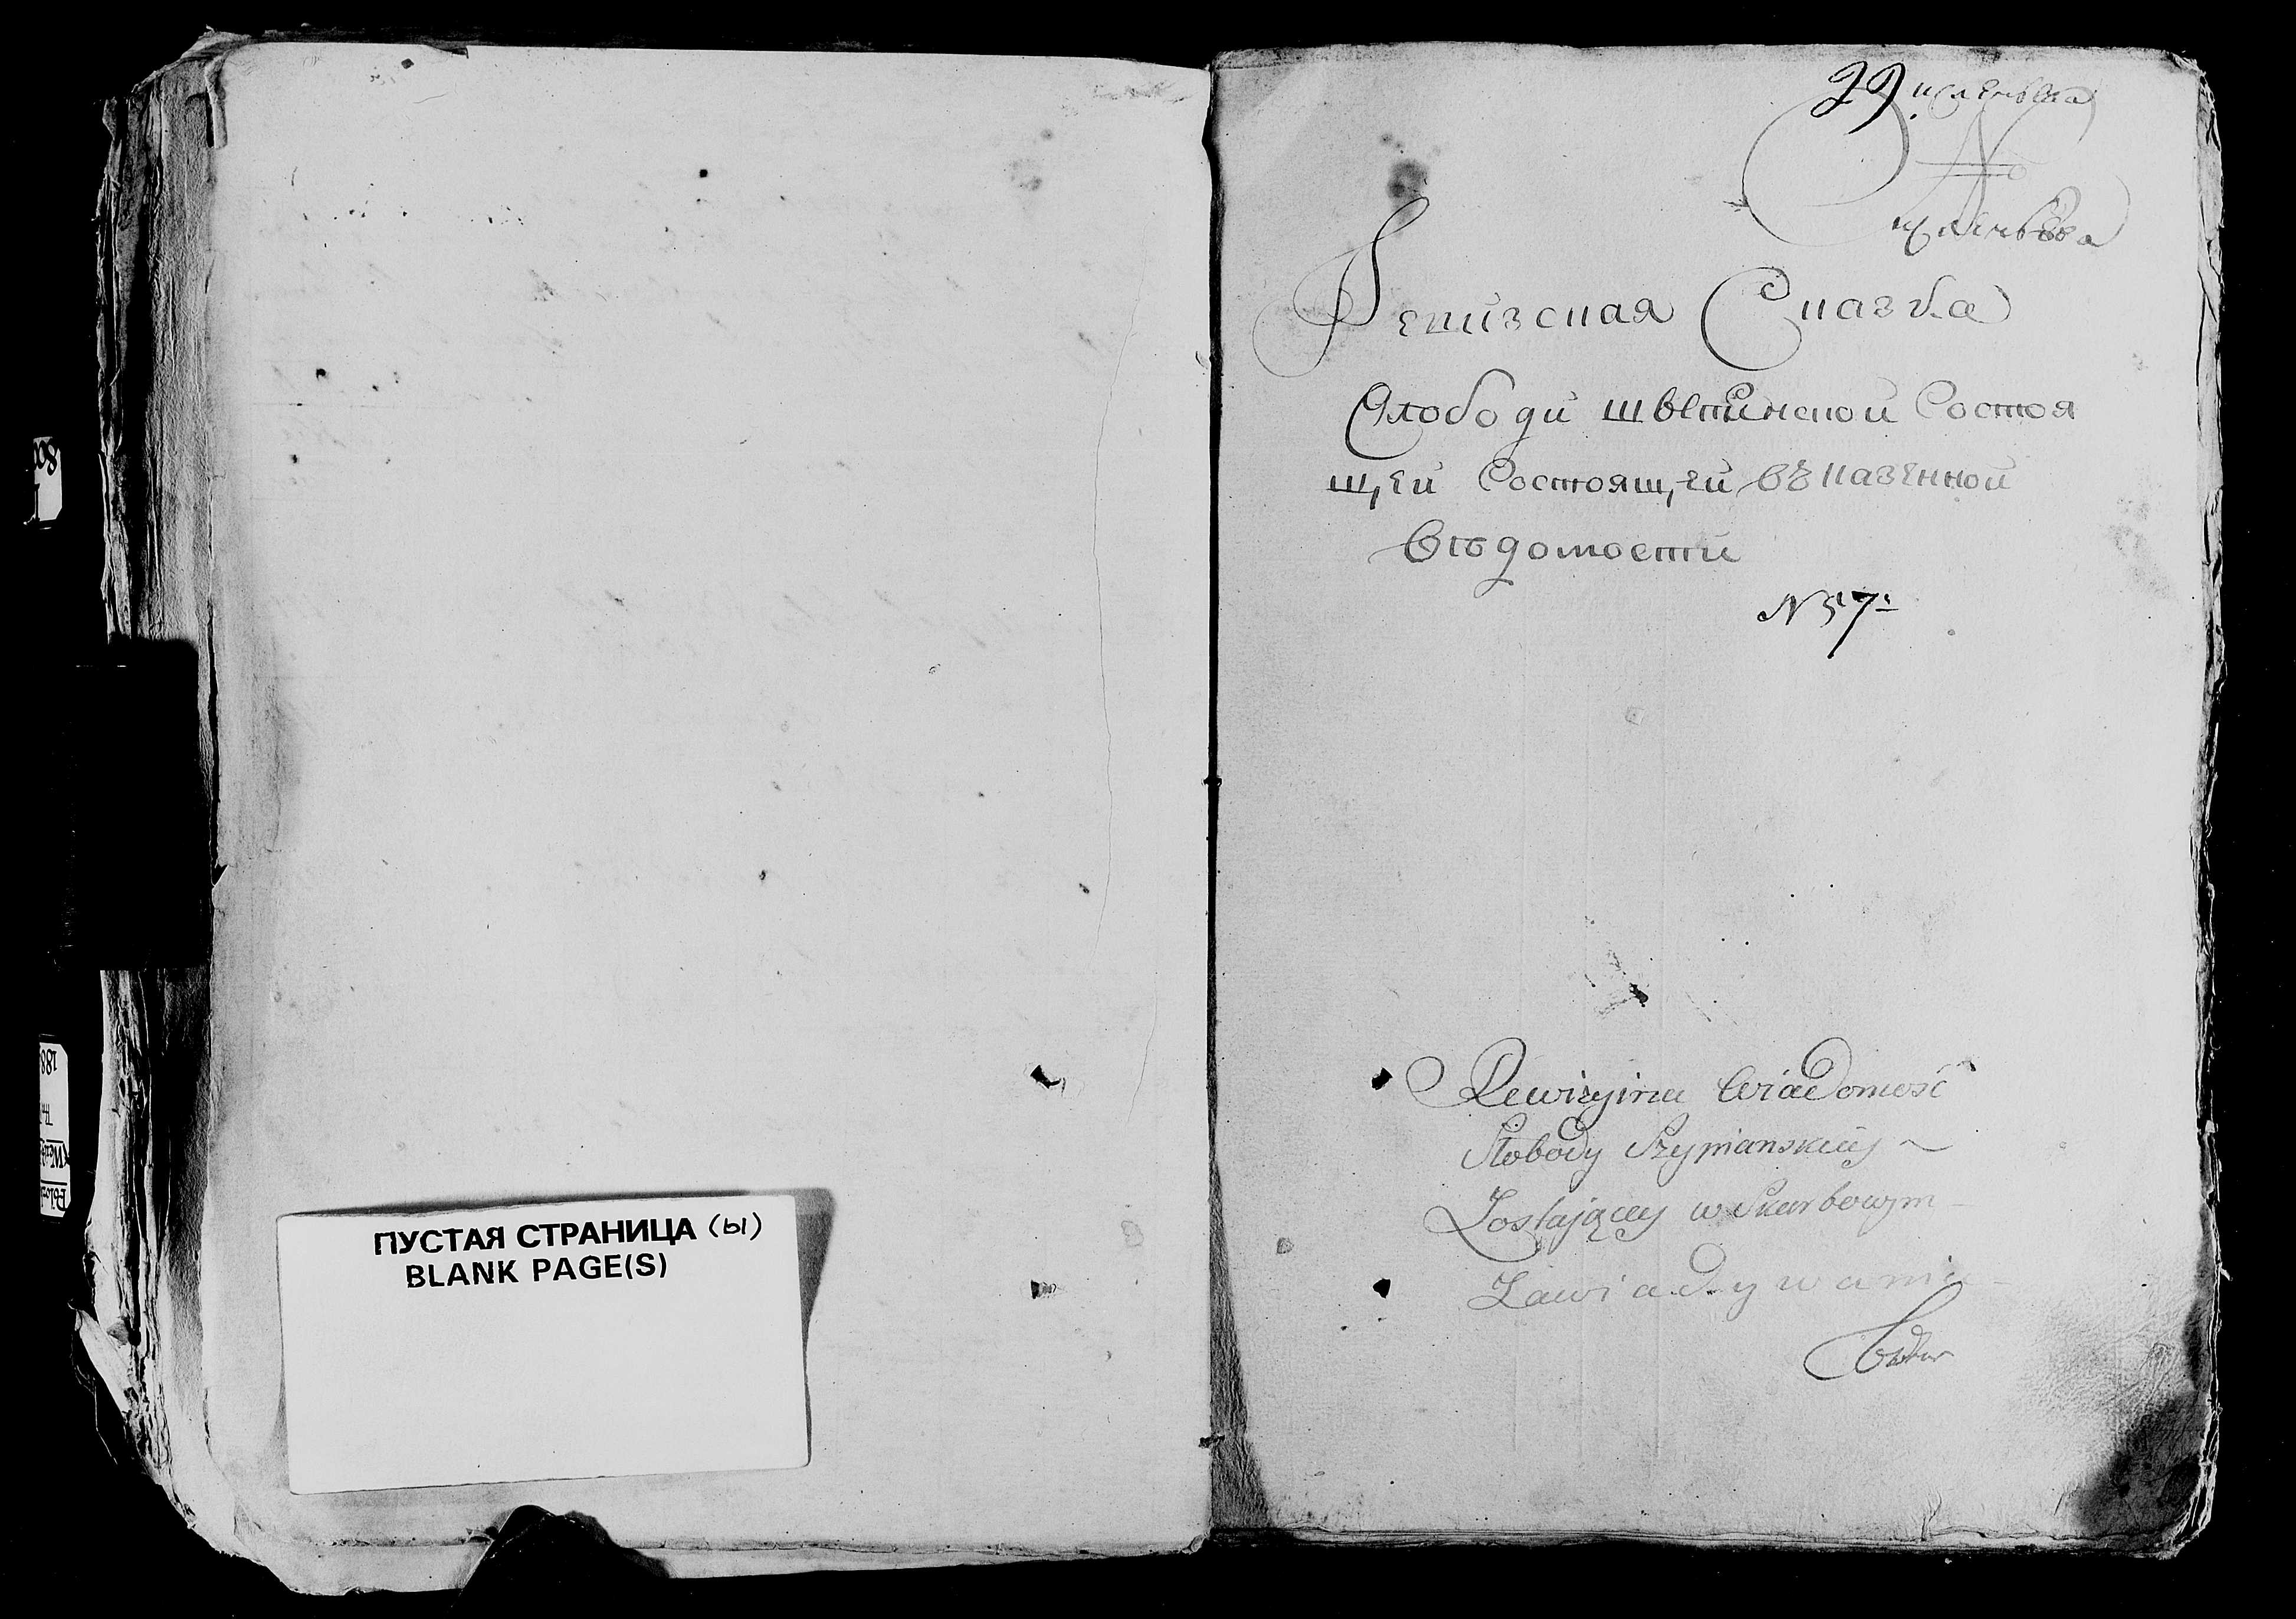 ПУСТАЯ СТРАНИЦА (ы)
BLANK PAGE(S)
29
№
Ревизская Сказка
Слободи Состоя
щей Состоящей въ казенной
вѣдомости
N 57
Rewizyina Wiadomość
Słobody Szymanskiey
Zostaiącey w Skarbowym
Zawiadywaniu